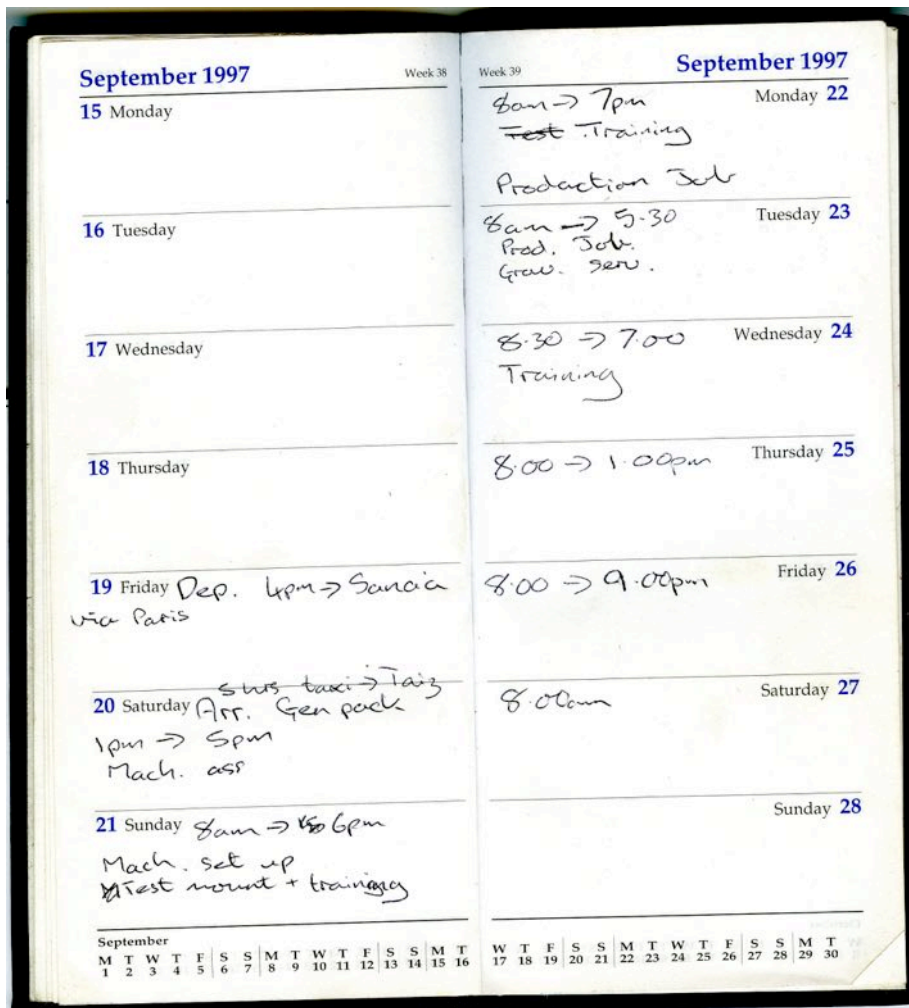 September 1997 Week 38
15 Monday
16 Tuesday
17 Wednesday
18 Thursday
19 Friday Dep. 4pm → Sanaia
via Paris
5 hrs taxi → Taiz
20 Saturday Arr. Genpack
1pm → 5pm
Mach. ass
21 Sunday 8am → 6pm
Mach. set up
Test mount + training
September
M T W T F S S M T W T F S S M T
1 2 3 4 5 6 7 8 9 10 11 12 13 14 15 16
Week 39 September 1997
8am → 7pm Monday 22
Test Training
Production Job
8am → 5.30 Tuesday 23
Prod. Job.
Grav. serv.
8.30 → 7.00 Wednesday 24
Training
8.00 → 1.00pm Thursday 25
8.00 → 9.00pm Friday 26
8.00am Saturday 27
Sunday 28
W T F S S M T W T F S S M T
17 18 19 20 21 22 23 24 25 26 27 28 29 30